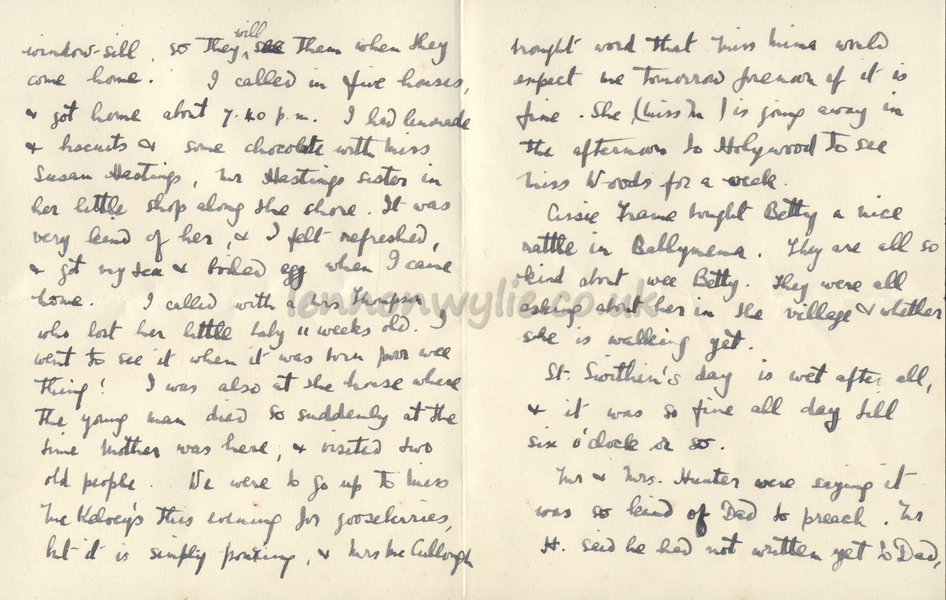 window-sill, so they will see them when they
come home. I called in five houses,
& got home about 7.40 p.m. I had lemonade
& biscuits & some chocolate with Miss
Susan Hastings, Mr Hastings sister in
her little shop along the shore. It was
very kind of her, & I felt refreshed,
& got my tea & boiled egg when I came
home. I called with a Mrs Thompson
who lost her little baby 11 weeks old. I
went to see it when it was born poor wee
thing! I was also at the house where
the young man died so suddenly at the
time Mother was here, & visited two
old people. We were to go up to Miss
McKelvey's this evening for gooseberries,
but it is simply pouring, & Mrs McCullough
brought word that Miss Mina would
expect me tomorrow forenoon if it is
fine. She (Miss M) is going away in
the afternoon to Holywood to see
Miss Woods for a week.
Cissie Frame bought Betty a nice
rattle in Ballymena. They are all so
kind about wee Betty. They were all
asking about her in the village & whether
she is walking yet.
St. Swithin's day is wet after all,
& it was so fine all day till
six o'clock or so.
Mr & Mrs. Hunter were saying it
was so kind of Dad to preach. Mr
H. said he had not written yet to Dad,
lennonwylie.co.uk